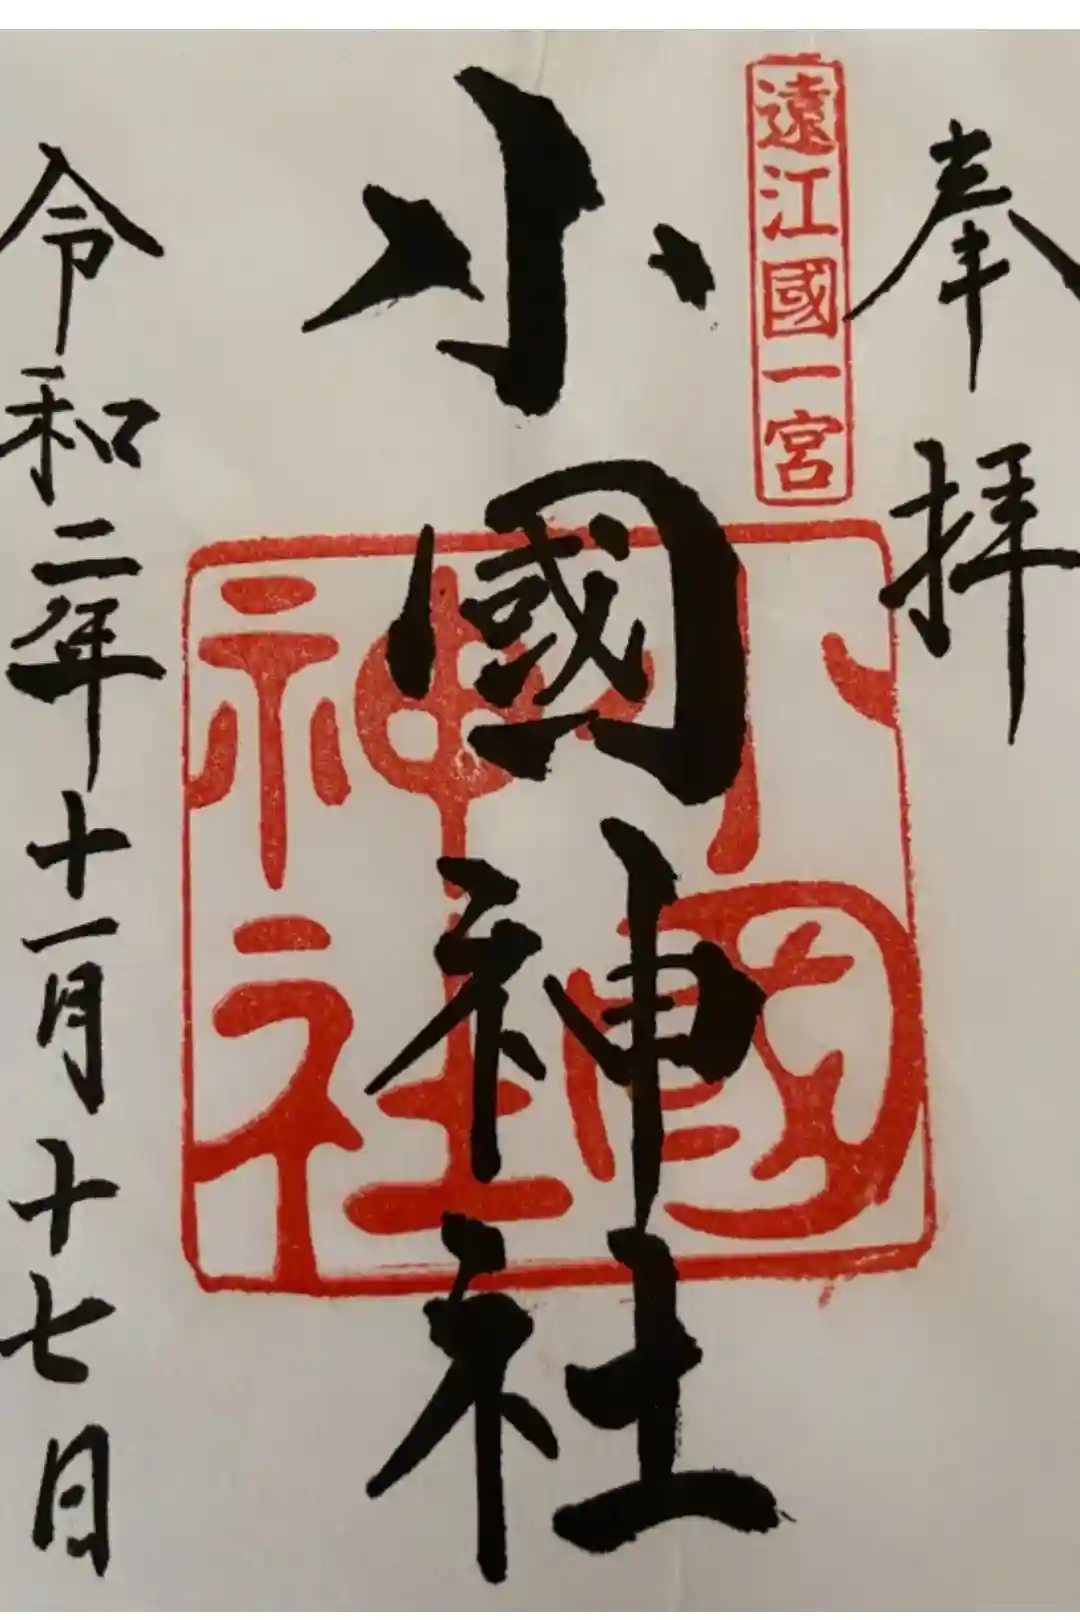 奉拝
遠江國一宮
小國神社
小國
神社
令和二年十一月十七日